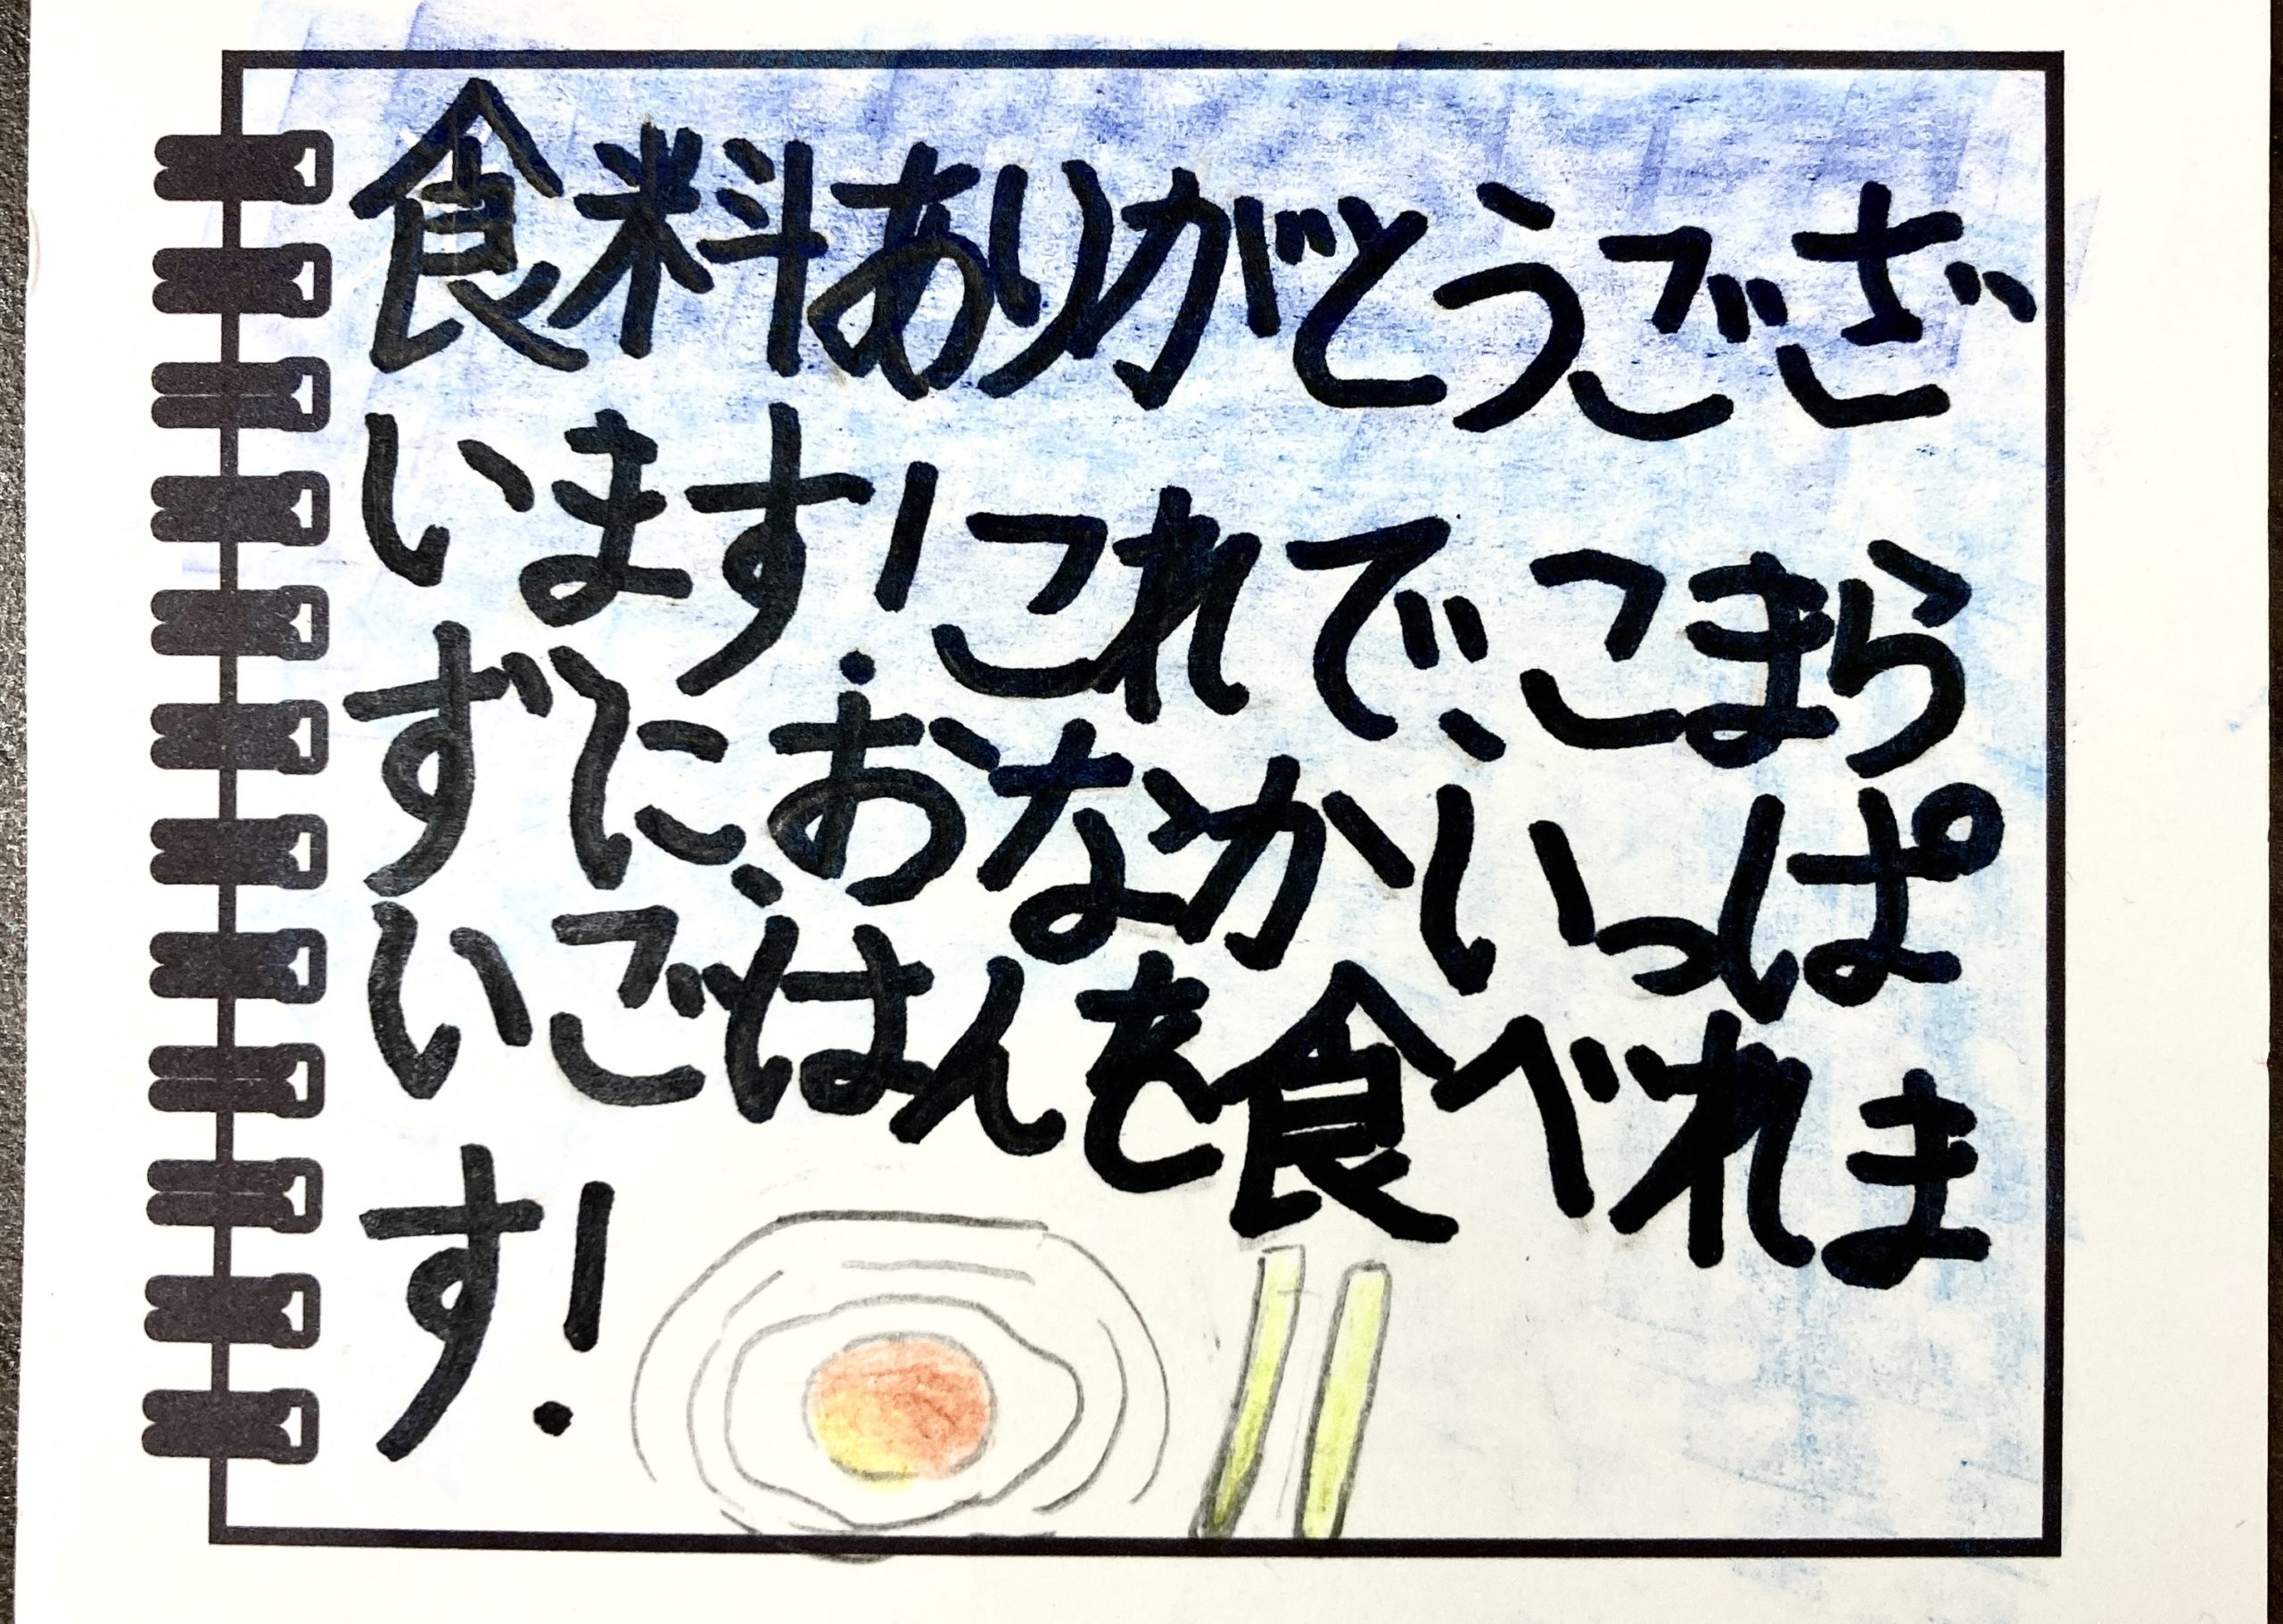 食料ありがとうござ
います!これで、こまら
ずに、おなかいっぱ
いごはんを食べれま
す!